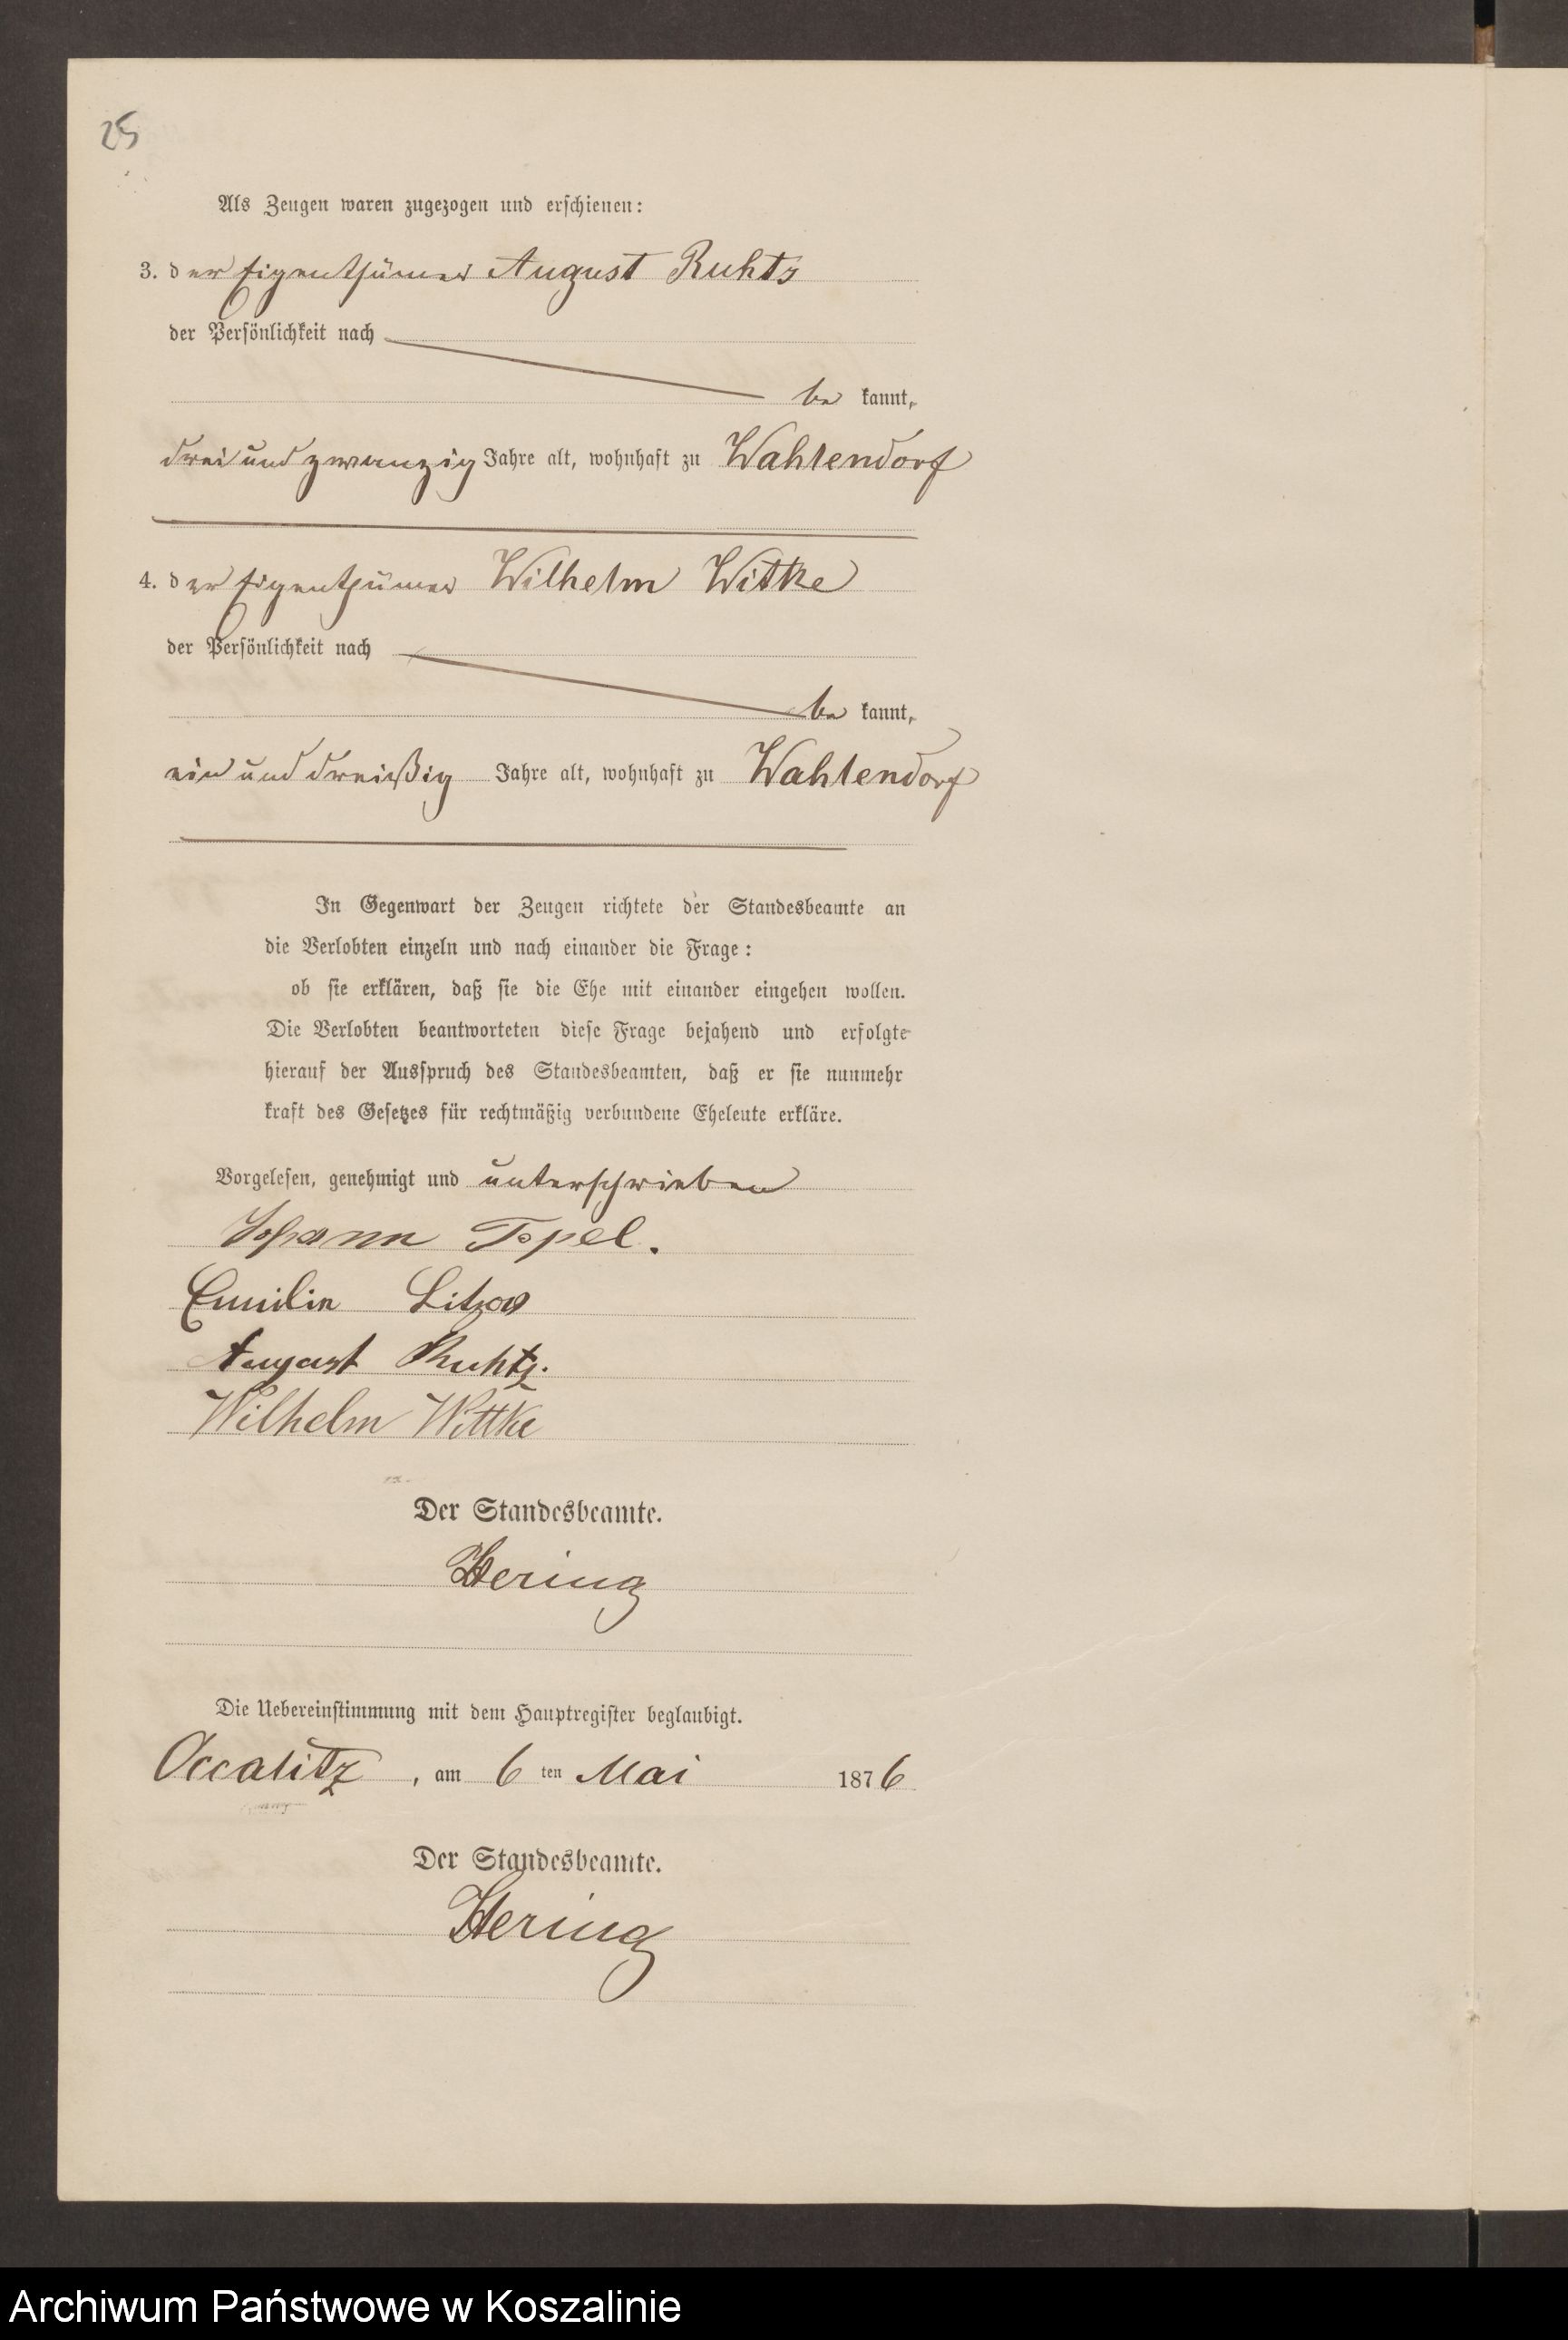 25
Als Zeugen waren zugezogen und erschienen:
3. der Eigenthümer August Ruhtz
der Persönlichkeit nach
be kannt,
drei und zwanzig Jahre alt, wohnhaft zu Wahlendorf
4. der Eigenthümer Wilhelm Wittke
der Persönlichkeit nach
be kannt,
ein und dreißig Jahre alt, wohnhaft zu Wahlendorf
In Gegenwart der Zeugen richtete der Standesbeamte an
die Verlobten einzeln und nach einander die Frage:
ob sie erklären, daß sie die Ehe mit einander eingehen wollen.
Die Verlobten beantworteten diese Frage bejahend und erfolgte
hierauf der Ausspruch des Standesbeamten, daß er sie nunmehr
kraft des Gesetzes für rechtmäßig verbundene Eheleute erkläre.
Vorgelesen, genehmigt und unterschrieben
Johann Topel.
Emilie Litzow
August Ruhtz.
Wilhelm Wittke
Der Standesbeamte.
Hering
Die Uebereinstimmung mit dem Hauptregister beglaubigt.
Occalitz, am 6 ten Mai 1876
Der Standesbeamte.
Hering
Archiwum Państwowe w Koszalinie